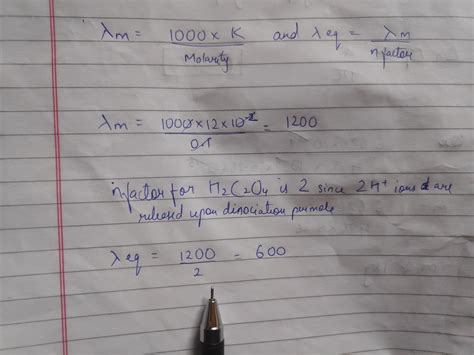 λm = 1000 × K / Molarity and λeq = λm / n factor
λm = 1000 × 12 × 10⁻² / 0.1 = 1200
n factor for H₂C₂O₄ is 2 since 2H⁺ ions are
released upon dissociation per mole
λeq = 1200 / 2 = 600